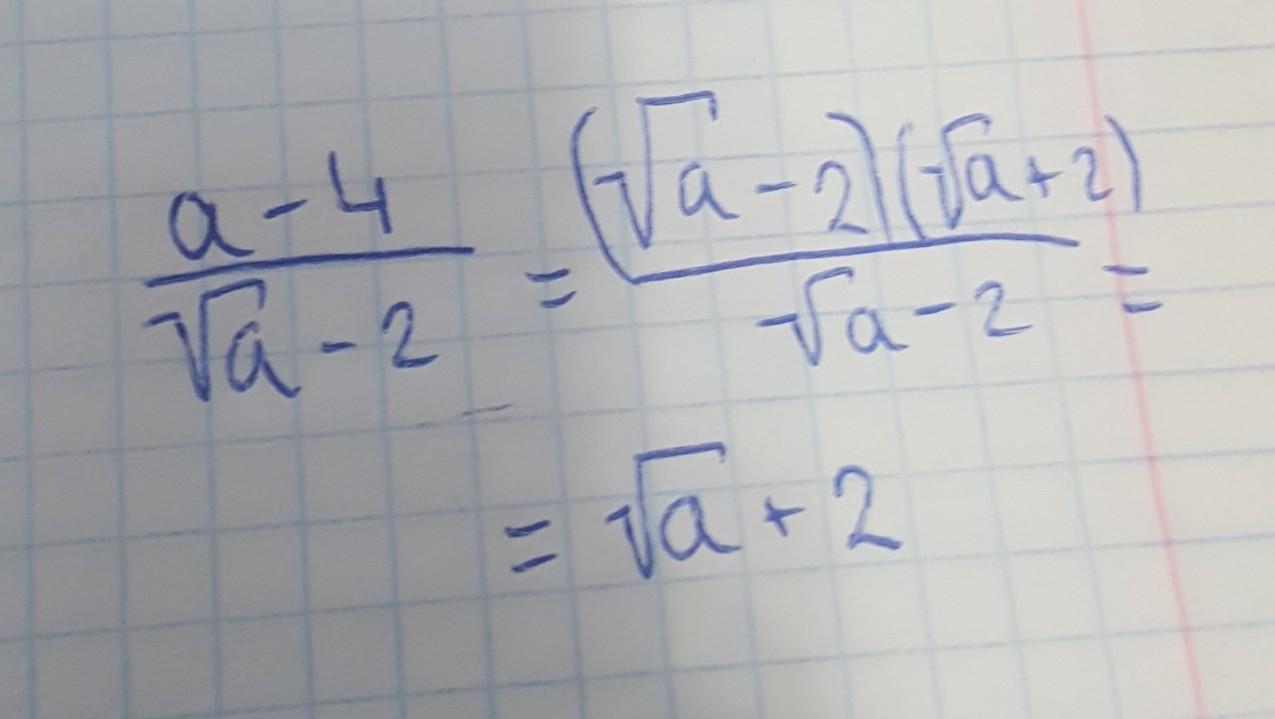 (a - 4)/(√a - 2) = ((√a - 2)(√a + 2))/(√a - 2) =
= √a + 2